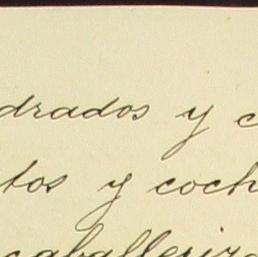 drados y c
tos y coch
caballeriz